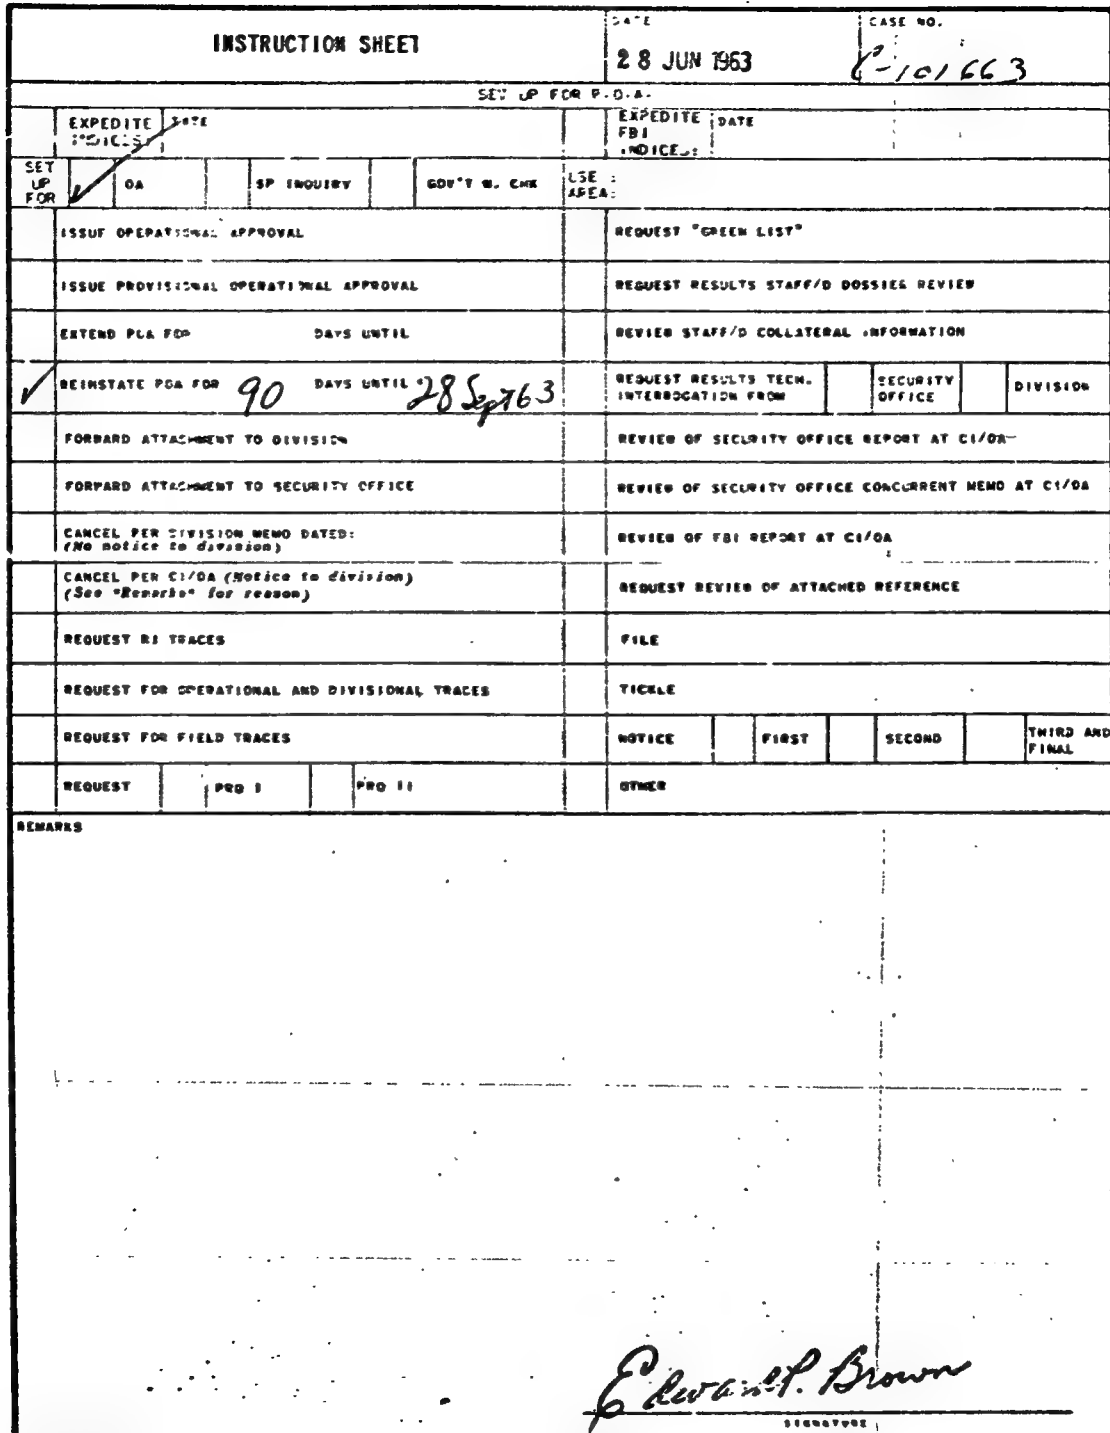 INSTRUCTION SHEET
DATE
28 JUN 1963
CASE NO.
C-101663
SET UP FOR P.O.A.
EXPEDITE INDICES: DATE
EXPEDITE FBI INDICES: DATE
SET UP FOR OA SP INQUIRY GOV'T W. CHK
USE AREA:
ISSUE OPERATIONAL APPROVAL
REQUEST "GREEN LIST"
ISSUE PROVISIONAL OPERATIONAL APPROVAL
REQUEST RESULTS STAFF/D DOSSIER REVIEW
EXTEND POA FOR DAYS UNTIL
REVIEW STAFF/D COLLATERAL INFORMATION
REINSTATE POA FOR 90 DAYS UNTIL 28 Sept 63
REQUEST RESULTS TECH. INTERROGATION FROM SECURITY OFFICE DIVISION
FORWARD ATTACHMENT TO DIVISION
REVIEW OF SECURITY OFFICE REPORT AT CI/OA
FORWARD ATTACHMENT TO SECURITY OFFICE
REVIEW OF SECURITY OFFICE CONCURRENT MEMO AT CI/OA
CANCEL PER DIVISION MEMO DATED:
(No notice to division)
REVIEW OF FBI REPORT AT CI/OA
CANCEL PER CI/OA (Notice to division)
(See "Remarks" for reason)
REQUEST REVIEW OF ATTACHED REFERENCE
REQUEST RI TRACES
FILE
REQUEST FOR OPERATIONAL AND DIVISIONAL TRACES
TICKLE
REQUEST FOR FIELD TRACES
NOTICE FIRST SECOND THIRD AND FINAL
REQUEST PRQ I PRQ II
OTHER
REMARKS
Edward P. Brown
SIGNATURE